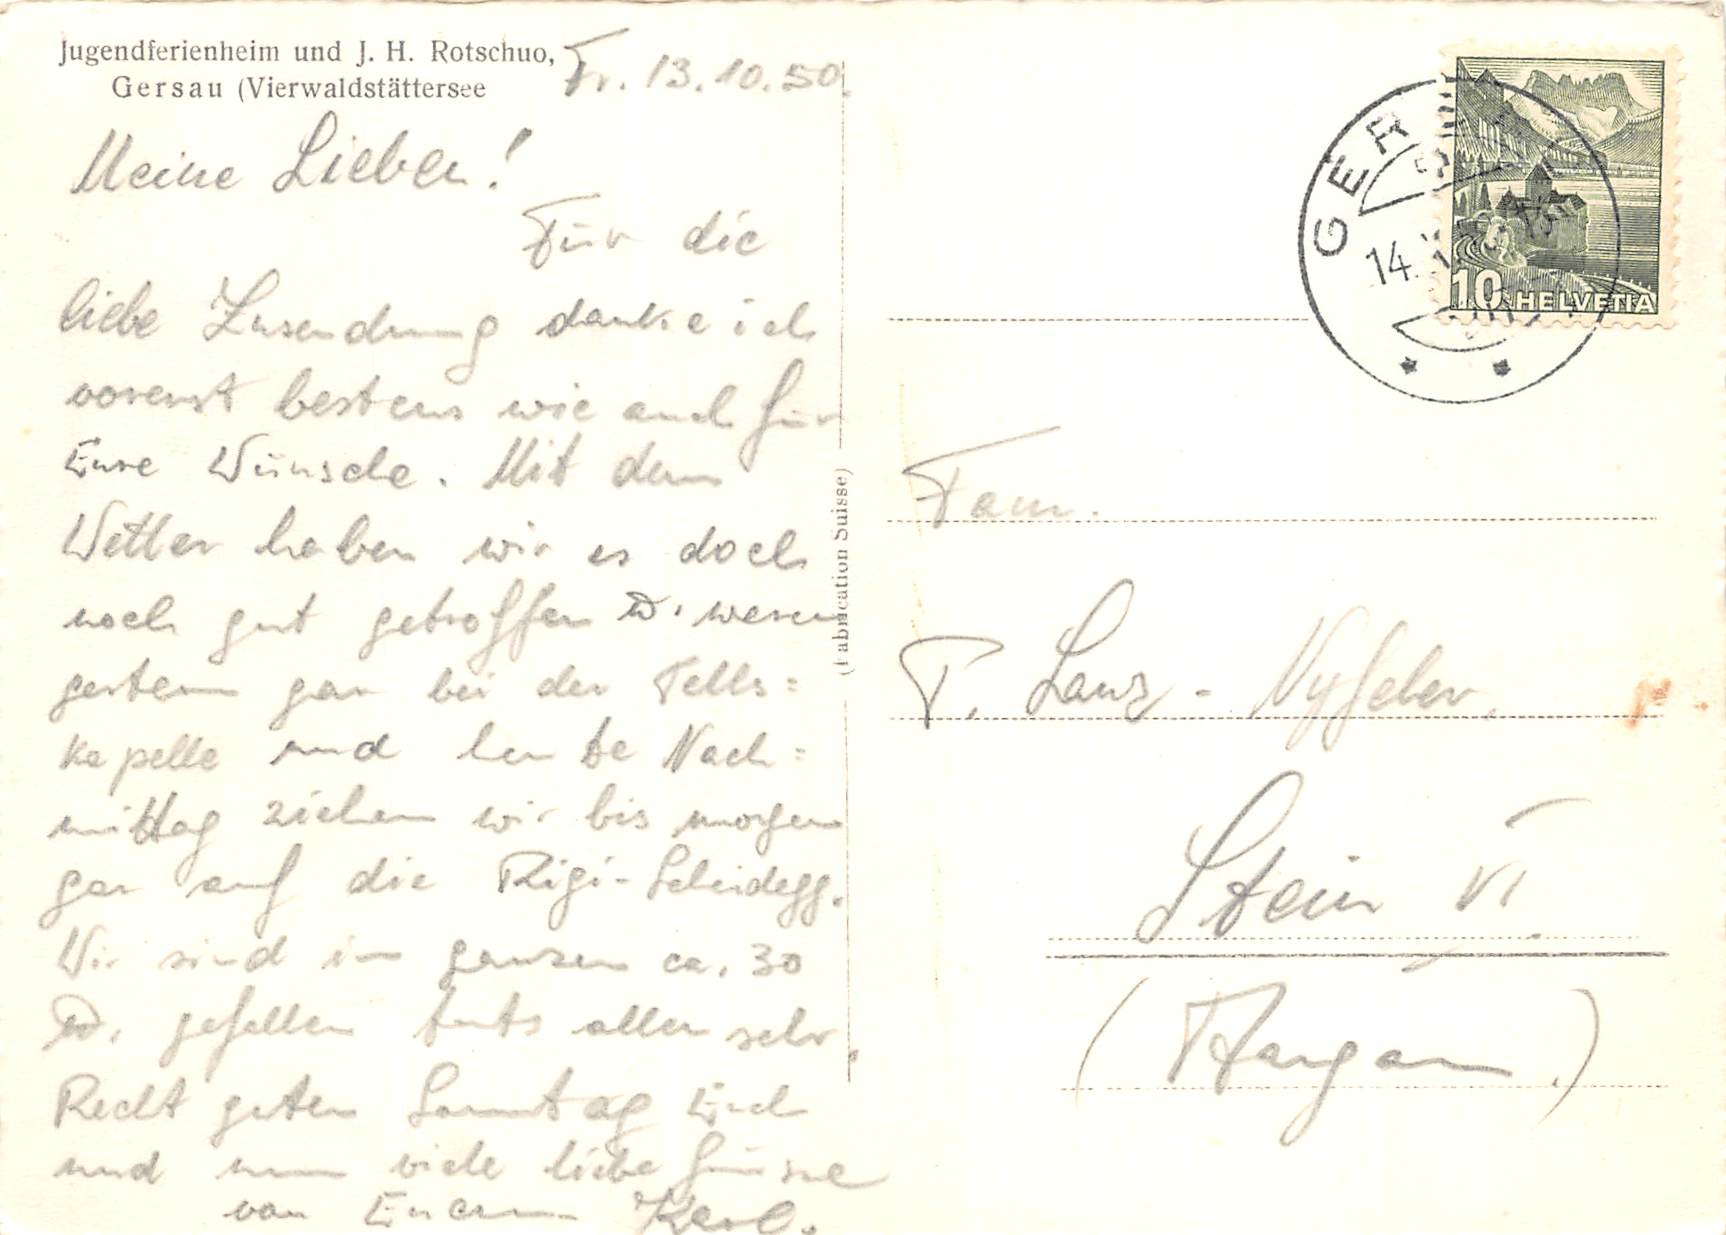 Jugendferienheim und J. H. Rotschuo,
Gersau (Vierwaldstättersee
Fr. 13.10.50.
Meine Lieben!
Für die
liebe Zusendung danke ich
vorerst bestens wie auch für
Eure Wünsche. Mit dem
Wetter haben wir es doch
noch gut getroffen & waren
gestern gar bei der Tells=
kapelle und heute Nach=
mittag ziehen wir bis morgen
gar auf die Rigi-Scheidegg.
Wir sind im ganzen ca. 30
gefallen tuts allen sehr.
Recht guten Sonntag Euch
und nun viele liebe Grüsse
von Eurem Karl.
(Fabrication Suisse)
GER
14.
10 HELVETIA
Fam.
T. Lanz-Nyfeler,
Stein
(Aargau.)